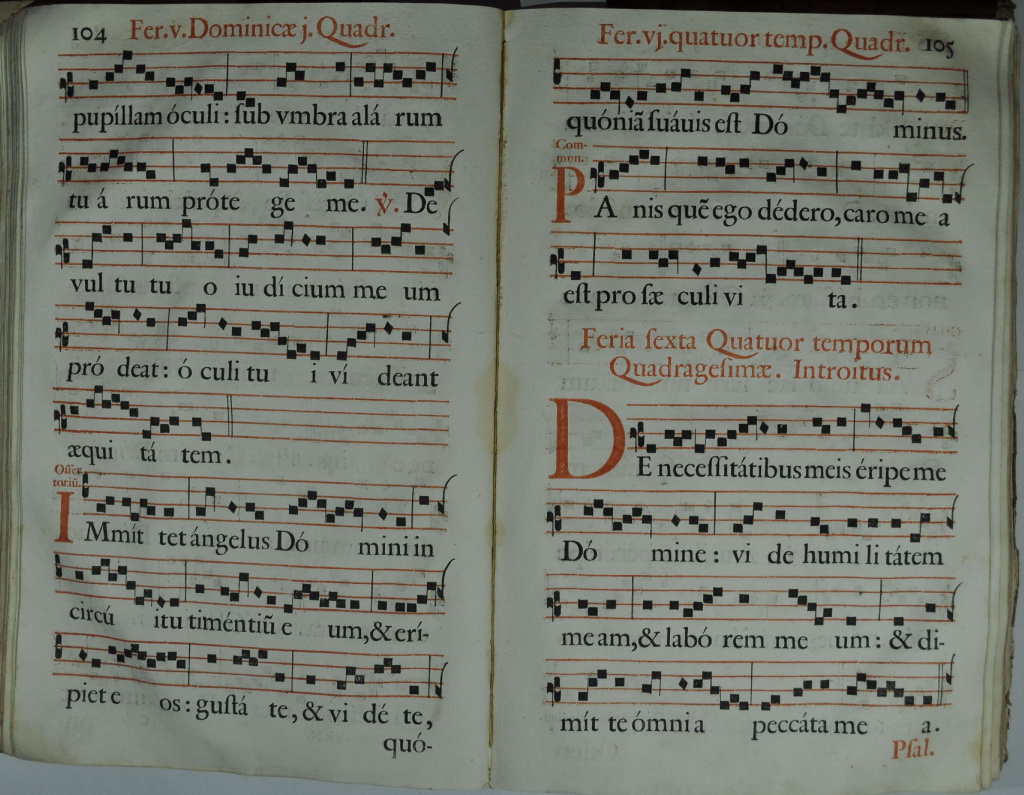 104 Fer.v.Dominicæ j. Quadr.
pupíllam óculi : ſub vmbra alá rum
tu á rum próte ge me. ℣. De
vul tu tu o iu dí cium me um
pró deat : ó culi tu i ví deant
æqui tá tem.
Offer
toriũ.
IMmít tet ángelus Dó mini in
circú itu timéntiũ e um, & erí-
piet e os : guſtá te, & vi dé te,
quó-
Fer.vj.quatuor temp. Quadr. 105
quóniã ſuáuis eſt Dó minus.
Com-
mun.
PA nis quẽ ego dédero, caro me a
eſt pro ſæ culi vi ta.
Feria ſexta Quatuor temporum
Quadrageſimæ. Introitus.
DE neceſſitátibus meis éripe me
Dó mine : vi de humi li tátem
me am, & labó rem me um : & di-
mít te ómni a peccáta me a.
Pſal.